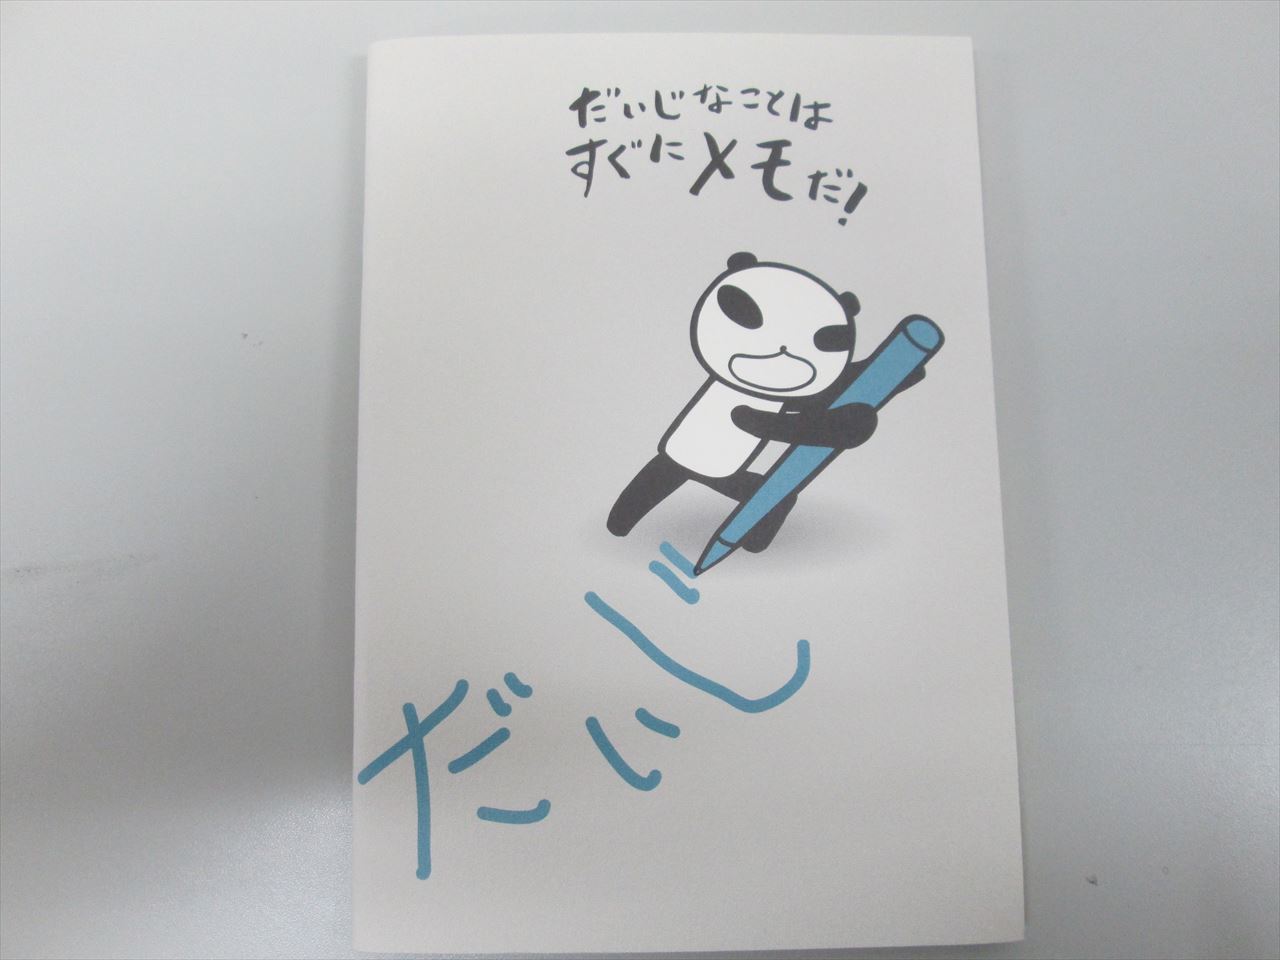 だいじなことは
すぐにメモだ!
だいじ